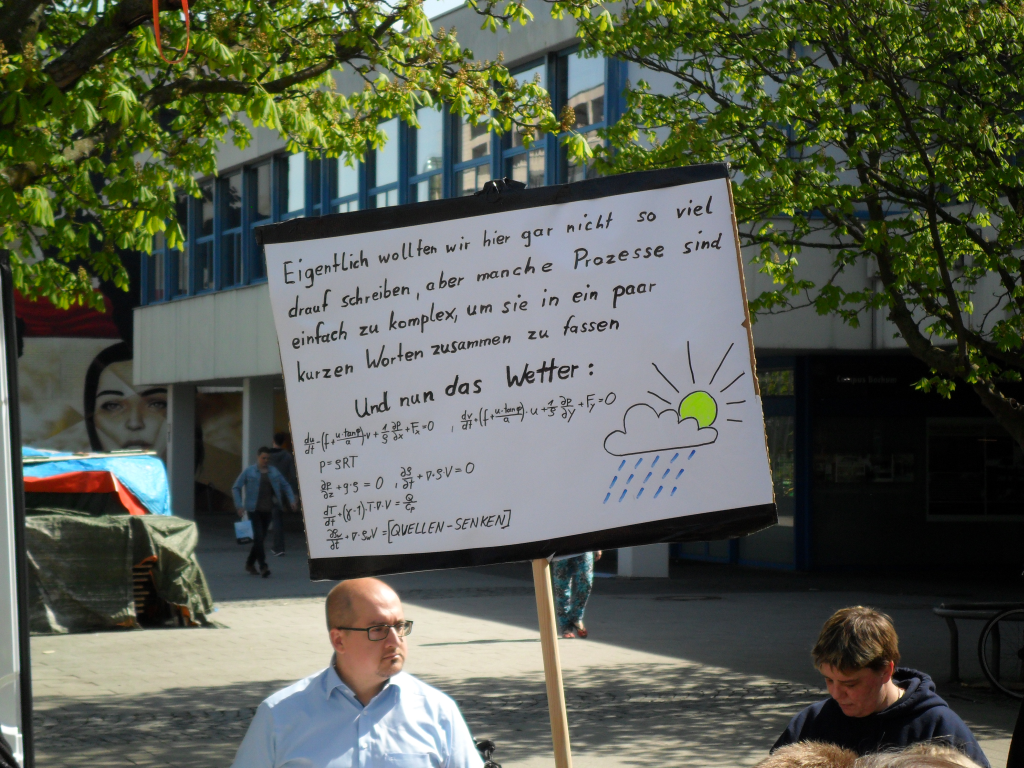 Eigentlich wollten wir hier gar nicht so viel
drauf schreiben, aber manche Prozesse sind
einfach zu komplex, um sie in ein paar
kurzen Worten zusammen zu fassen
Und nun das Wetter:
du/dt - (f + u·tanφ/a)·v + 1/ρ ∂p/∂x + Fx = 0 , dv/dt + (f + u·tanφ/a)·u + 1/ρ ∂p/∂y + Fy = 0
p = ρRT
∂p/∂z + g·ρ = 0 , ∂ρ/∂t + ∇·ρ·V = 0
dT/dt + (γ-1)·T·∇·V = Q/cp
∂ρw/∂t + ∇·ρwV = [QUELLEN-SENKEN]